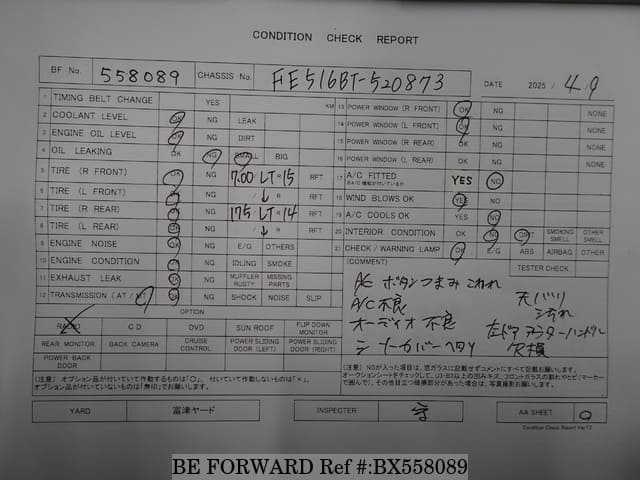 CONDITION CHECK REPORT
BF No. 558089 CHASSIS No. FE516BT-520873 DATE 2025 / 4.9
1 TIMING BELT CHANGE YES KM
2 COOLANT LEVEL OK NG LEAK
3 ENGINE OIL LEVEL OK NG DIRT
4 OIL LEAKING OK NG SMALL BIG
5 TIRE (R FRONT) OK NG 7.00 LT-15 RFT
6 TIRE (L FRONT) OK NG / ↓ R RFT
7 TIRE (R REAR) OK NG 175 / LT R 14 RFT
8 TIRE (L REAR) OK NG / ↓ R RFT
9 ENGINE NOISE OK NG E/G OTHERS
10 ENGINE CONDITION OK NG IDLING SMOKE
11 EXHAUST LEAK OK NG MUFFLER RUSTY MISSING PARTS
12 TRANSMISSION (AT / MT) OK NG SHOCK NOISE SLIP
OPTION
RADIO CD DVD SUN ROOF FLIP DOWN MONITOR
REAR MONITOR BACK CAMERA CRUISE CONTROL POWER SLIDING DOOR (LEFT) POWER SLIDING DOOR (RIGHT)
POWER BACK DOOR
(注意) オプション品が付いていて作動するものは「○」、付いていて作動しないものは「×」、
オプション品が付いていないものは「無印」でお願いします。
13 POWER WINDOW (R FRONT) OK NG NONE
14 POWER WINDOW (L FRONT) OK NG NONE
15 POWER WINDOW (R REAR) OK NG NONE
16 POWER WINDOW (L REAR) OK NG NONE
17 A/C FITTED YES NO
※A/C 機能が付いているか
18 WIND BLOWS OK YES NO
19 A/C COOLS OK YES NO
20 INTERIOR CONDITION OK NG DIRT SMOKING SMELL OTHER SMELL
21 CHECK / WARNING LAMP OK E/G ABS AIRBAG OTHER
(COMMENT) TESTER CHECK
A/C ボタンつまみ これれ
A/C不良
オーディオ不良
シートカバーヘタリ
天バリ
よごれ
左ドア アウターハンドル
欠損
(注意) NGが入った項目は、窓ガラスに記載せずコメントにすべて記載お願いします。
オークションシートをチェックして、U3・B3以上の凹みキズ、フロントガラスの割れやヒビ(マーカー
で囲んで)、その他目立つ破損部分があった場合は、写真撮影お願いします。
YARD 富津ヤード INSPECTER AA SHEET ○
Condition Check Report Ver7.2
BE FORWARD Ref #:BX558089